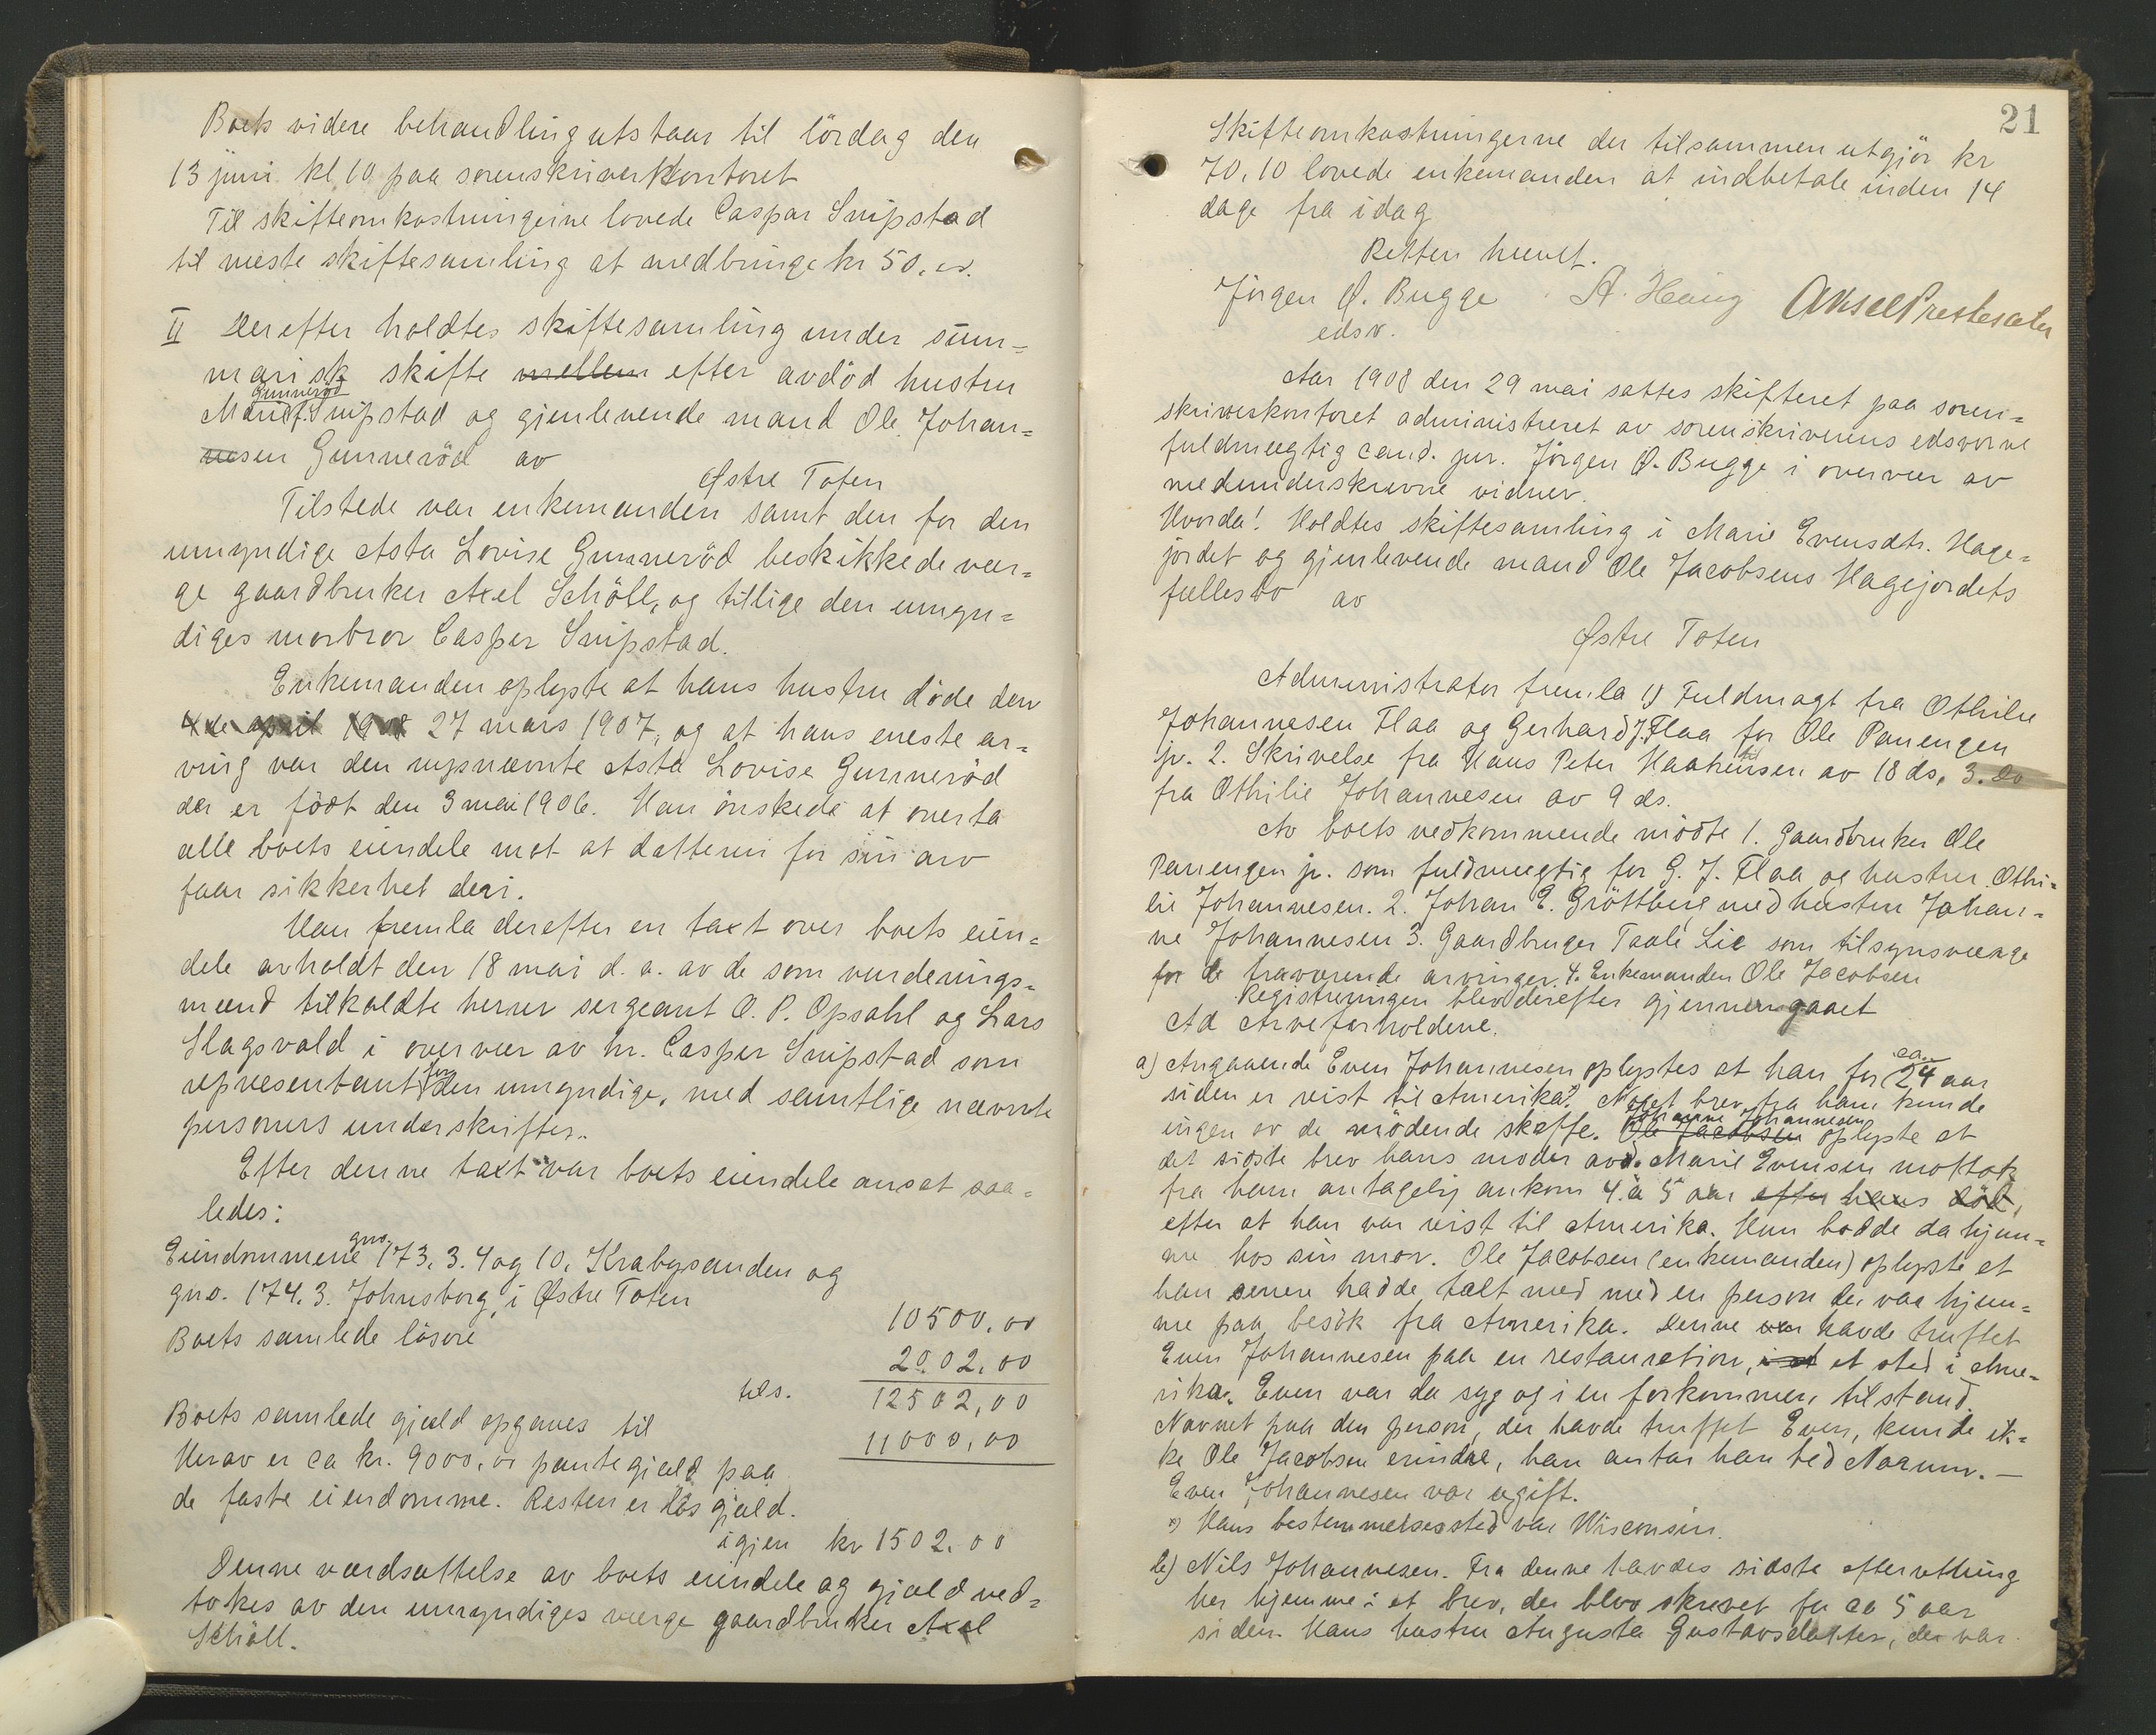 Boets videre behandling utstaar til lördag den
13 juni kl 10 paa sorenskriverkontoret
Til skifteomkostningerne lovede Caspar Snipstad
til næste skiftesamling at medbringe kr 50.00.
II Derefter holdtes skiftesamling under sum=
marisk skifte mellem efter avdöd hustru
Gunneröd
Marie f. Snipstad og gjenlevende mand Ole Johan=
nesen Gunneröd av
Østre Toten
Tilstede var enkemanden samt den for den
umyndige Asta Lovise Gunneröd beskikkede vær=
ge gaardbruker Axel Schöll, og tillige den umyn=
diges morbror Casper Snipstad.
Enkemanden oplyste at hans hustru döde den
4de april 1908 27 mars 1907, og at hans eneste ar=
ving var den nysnævnte Asta Lovise Gunneröd
der er födt den 3 mai 1906. Han önskede at overta
alle boets eiendele mot at datteren for sin arv
faar sikkerhet deri.
Han fremla derefter en taxt over boets eien=
dele avholdt den 18 mai d. a. av de som vurderings=
mænd tilkaldte herrer sergeant O. P. Opsahl og Lars
Slagsvold i overvær av hr. Casper Snipstad som
for
repræsentant den umyndige, med samtlige nævnte
personers underskrifter.
Efter denne taxt var boets eiendele ansat saa=
ledes:
gno.
Eiendommene 173, 3. 4 og 10, Krabysanden og
gno. 174. 3. Johnsborg, i Østre Toten
10500,00
Boets samlede lösöre
2002,00
tils. 12502,00
Boets samlede gjæld opgaves til
11000,00
Herav er ca kr. 9000,00 pantegjæld paa
de faste eiendomme. Resten er lös gjæld.
igjen kr 1502.00
Denne værdsættelse av boets eiendele og gjæld ved=
tokes av den umyndiges værge gaardbruker Axel
Schöll.
21
Skifteomkostningerne der tilsammen utgjör kr
70,10 lovede enkemanden at indbetale inden 14
dage fra idag
Retten hævet.
Jörgen Ø. Bugge A. Haug Aksel Prestesæter
edsv.
Aar 1908 den 29 mai sattes skifteret paa soren=
skriverkontoret administreret av sorenskriverens edsvorne
fuldmægtig cand. jur. Jörgen Ø. Bugge i overvær av
medunderskrevne vidner.
Hvorda! Holdtes skiftesamling i Marie Evensdtr. Hage=
jordet og gjenlevende mand Ole Jacobsens Hagejordets
fællesbo av
Østre Toten
Administrator fremla 1) Fuldmagt fra Othilie
Johannesen Flaa og Gerhard J. Flaa for Ole Panengen
jr. 2. Skrivelse fra Hans Peter Haakensen av 18 ds, 3. do
fra Othilie Johannesen av 9 ds.
Av boets vedkommende mödte 1. Gaardbruker Ole
Panengen jr. som fuldmægtig for G. J. Flaa og hustru Othi=
lie Johannesen. 2. Johan E. Gröttberg med hustru Johan=
ne Johannesen 3. Gaardbruger Taale Lie som tilsynsværge
for de fraværende arvinger. 4. Enkemanden Ole Jacobsen
Registreringen blev derefter gjennemgaaet
Ad Arveforholdene.
ca.
a) Angaaende Even Johannesen oplystes at han for 24 aar
siden er reist til Amerika.*) Noget brev fra ham kunde
Johanne Johannesen
ingen av de mödende skaffe. Ole Jacobsen oplyste at
det sidste brev hans moder avd. Marie Evensen mottok
fra ham antagelig ankom 4 à 5 aar efter hans död,
efter at han var reist til Amerika. Hun bodde da hjem=
me hos sin mor. Ole Jacobsen (enkemanden) oplyste at
han senere hadde talt med med en person der var hjem=
me paa besök fra Amerika. Denne var havde truffet
Even Johannesen paa en restauration, i et et sted i Ame=
rika. Even var da syg og i en forkommen tilstand.
Navnet paa den person, der havde truffet Even, kunde ik=
ke Ole Jacobsen erindre, han antar han hed Narum. —
Even Johannesen var ugift.
*) Hans bestemmelsessted var Wisconsin.
b) Nils Johannesen. Fra denne havdes sidste efterretning
her hjemme i et brev, der blev skrevet for ca 5 aar
siden. Hans hustru Augusta Gustavsdatter, der var